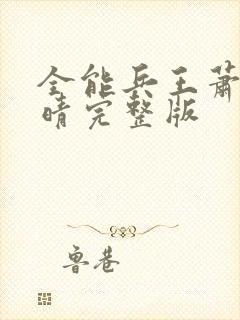 全能兵王萧
晴完整版
鲁巷